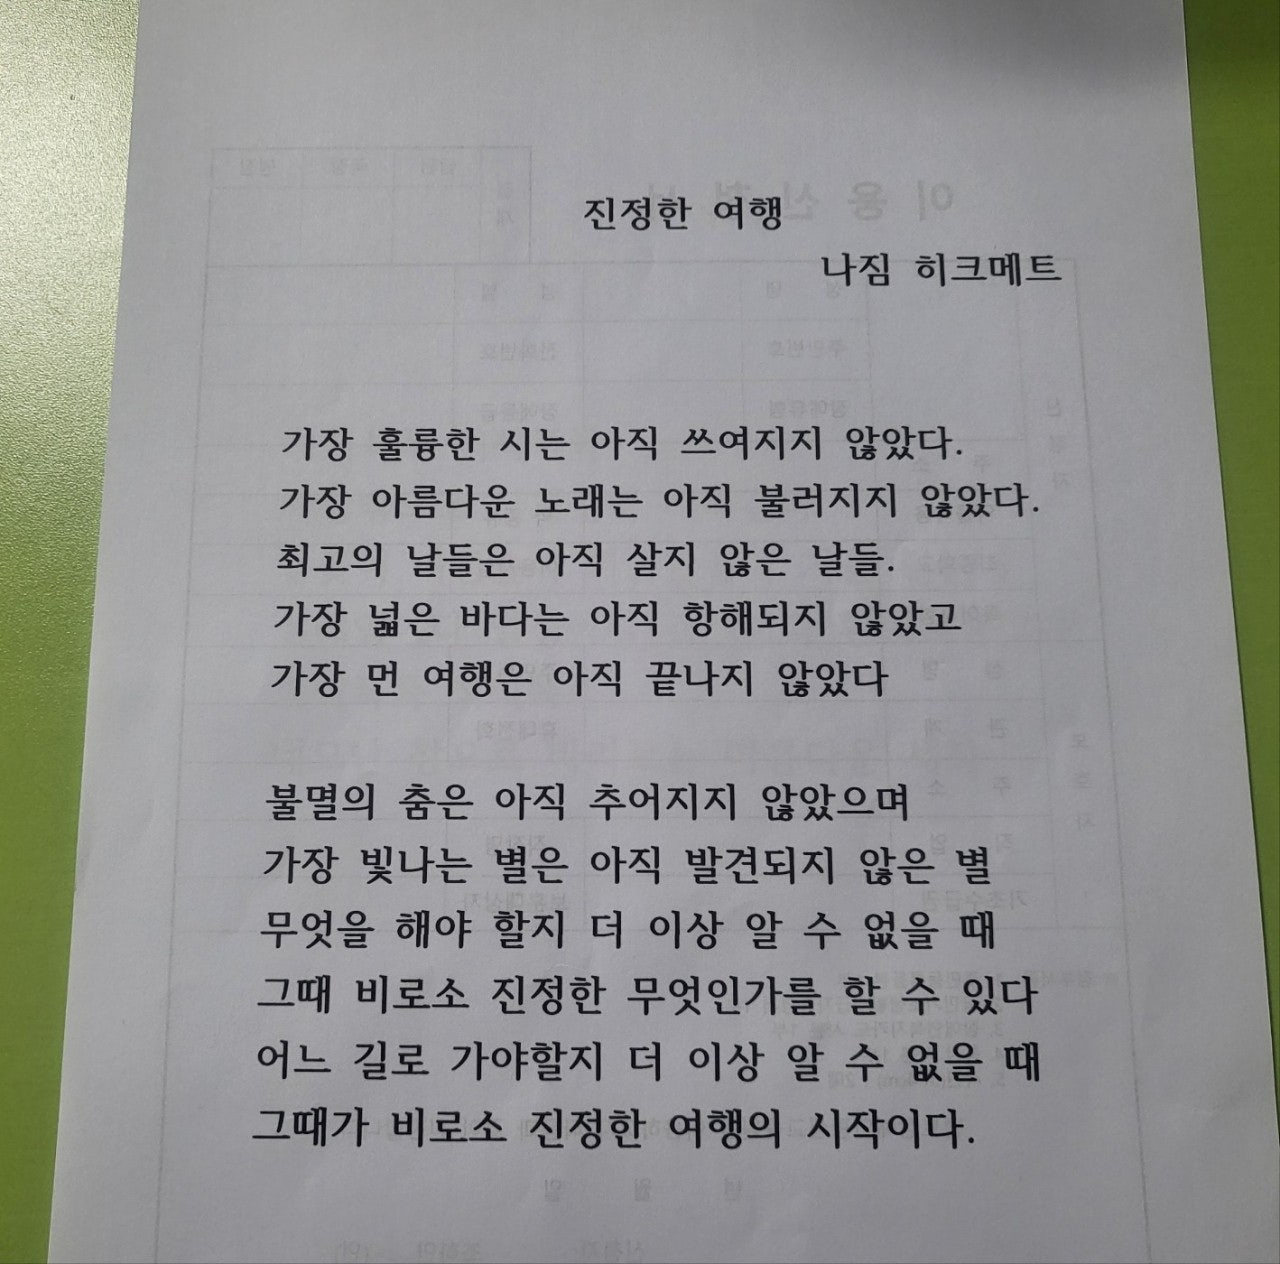 진정한 여행
나짐 히크메트
가장 훌륭한 시는 아직 쓰여지지 않았다.
가장 아름다운 노래는 아직 불러지지 않았다.
최고의 날들은 아직 살지 않은 날들.
가장 넓은 바다는 아직 항해되지 않았고
가장 먼 여행은 아직 끝나지 않았다
불멸의 춤은 아직 추어지지 않았으며
가장 빛나는 별은 아직 발견되지 않은 별
무엇을 해야 할지 더 이상 알 수 없을 때
그때 비로소 진정한 무엇인가를 할 수 있다
어느 길로 가야할지 더 이상 알 수 없을 때
그때가 비로소 진정한 여행의 시작이다.